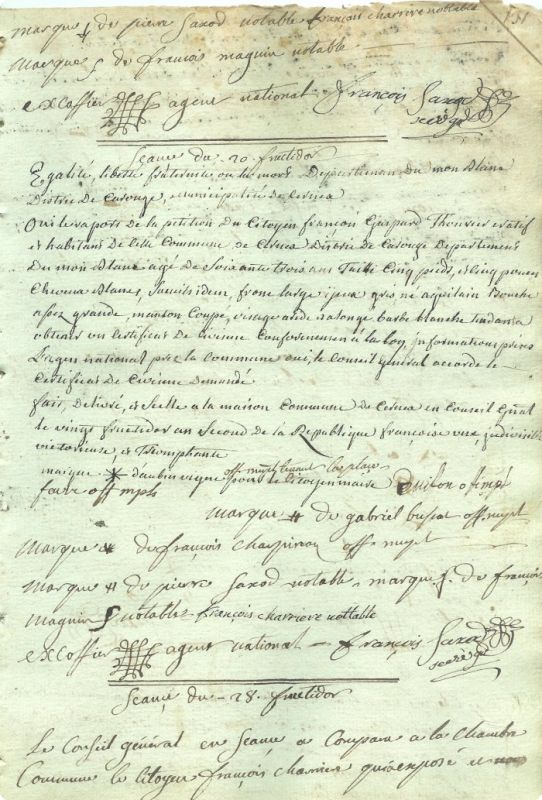 marque § de pierre Saxod notable françois charriere nottable 151
Marque § de françois magnin notable
excoffier agent national françois Saxod
secrég.
Seance du 20 fructidor
Egalité, liberté fraternité ou la mort Departement du mon Blanc
District de Carouge, municipalité de Cernex
Oui le raport de la petition du Citoyen françois Gaspard Thouvier natif
et habitant de cette Commune de Cernex District de Carouge Departement
Du mon Blanc agé de Soixante trois ans Taille Cinq pieds, et cinq pouces
Cheveux Blancs, Sourcils idem, front large, yeux gris né aquilain Bouche
assez grande, manton Coupé, visage ride et alongé barbe blanche tendant a
obtenir un Certificat de Civisme Conformement à la loy, informations prises
L'agen national près la commune oui, le Conseil general accorde le
Certificat de Civisme Demandé
fait, delivré, et Scellé a la maison Commune de Cernex en Conseil Gñal
le vingt fructidor an Second de la Republique françoise une indivisible
victorieuse, et Triomphante
marque * d'aubin off. mupt tenant la place
pour le Citoyen maire
favre off mpl
marque # de gabriel off. mupt
Marque # de françois off. mupt
Marque # de pierre Saxod notable, marque §. de françois
Magnin § notable françois charriere nottable
excoffier agent national françois Saxod
secrég.
Seance du 28. fructidor
Le Conseil général en Seance a Comparu a la chambre
Commune le Citoyen françois charrier qui a exposé